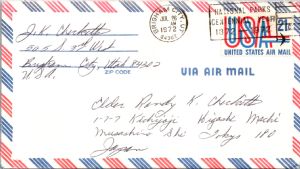 J.K. Checketts
505 S. 3rd West
Brigham City, Utah 84302
U.S.A.
ZIP CODE
BRIGHAM CITY, UT
JUL
1972
84302
NATIONAL PARKS
CENTENNIAL
1872 1972
USA
21¢
UNITED STATES AIR MAIL
VIA AIR MAIL
Elder Randy K. Checketts
1-7-7 Kichijoji Higashi Machi
Musashino Shi Tokyo 180
Japan